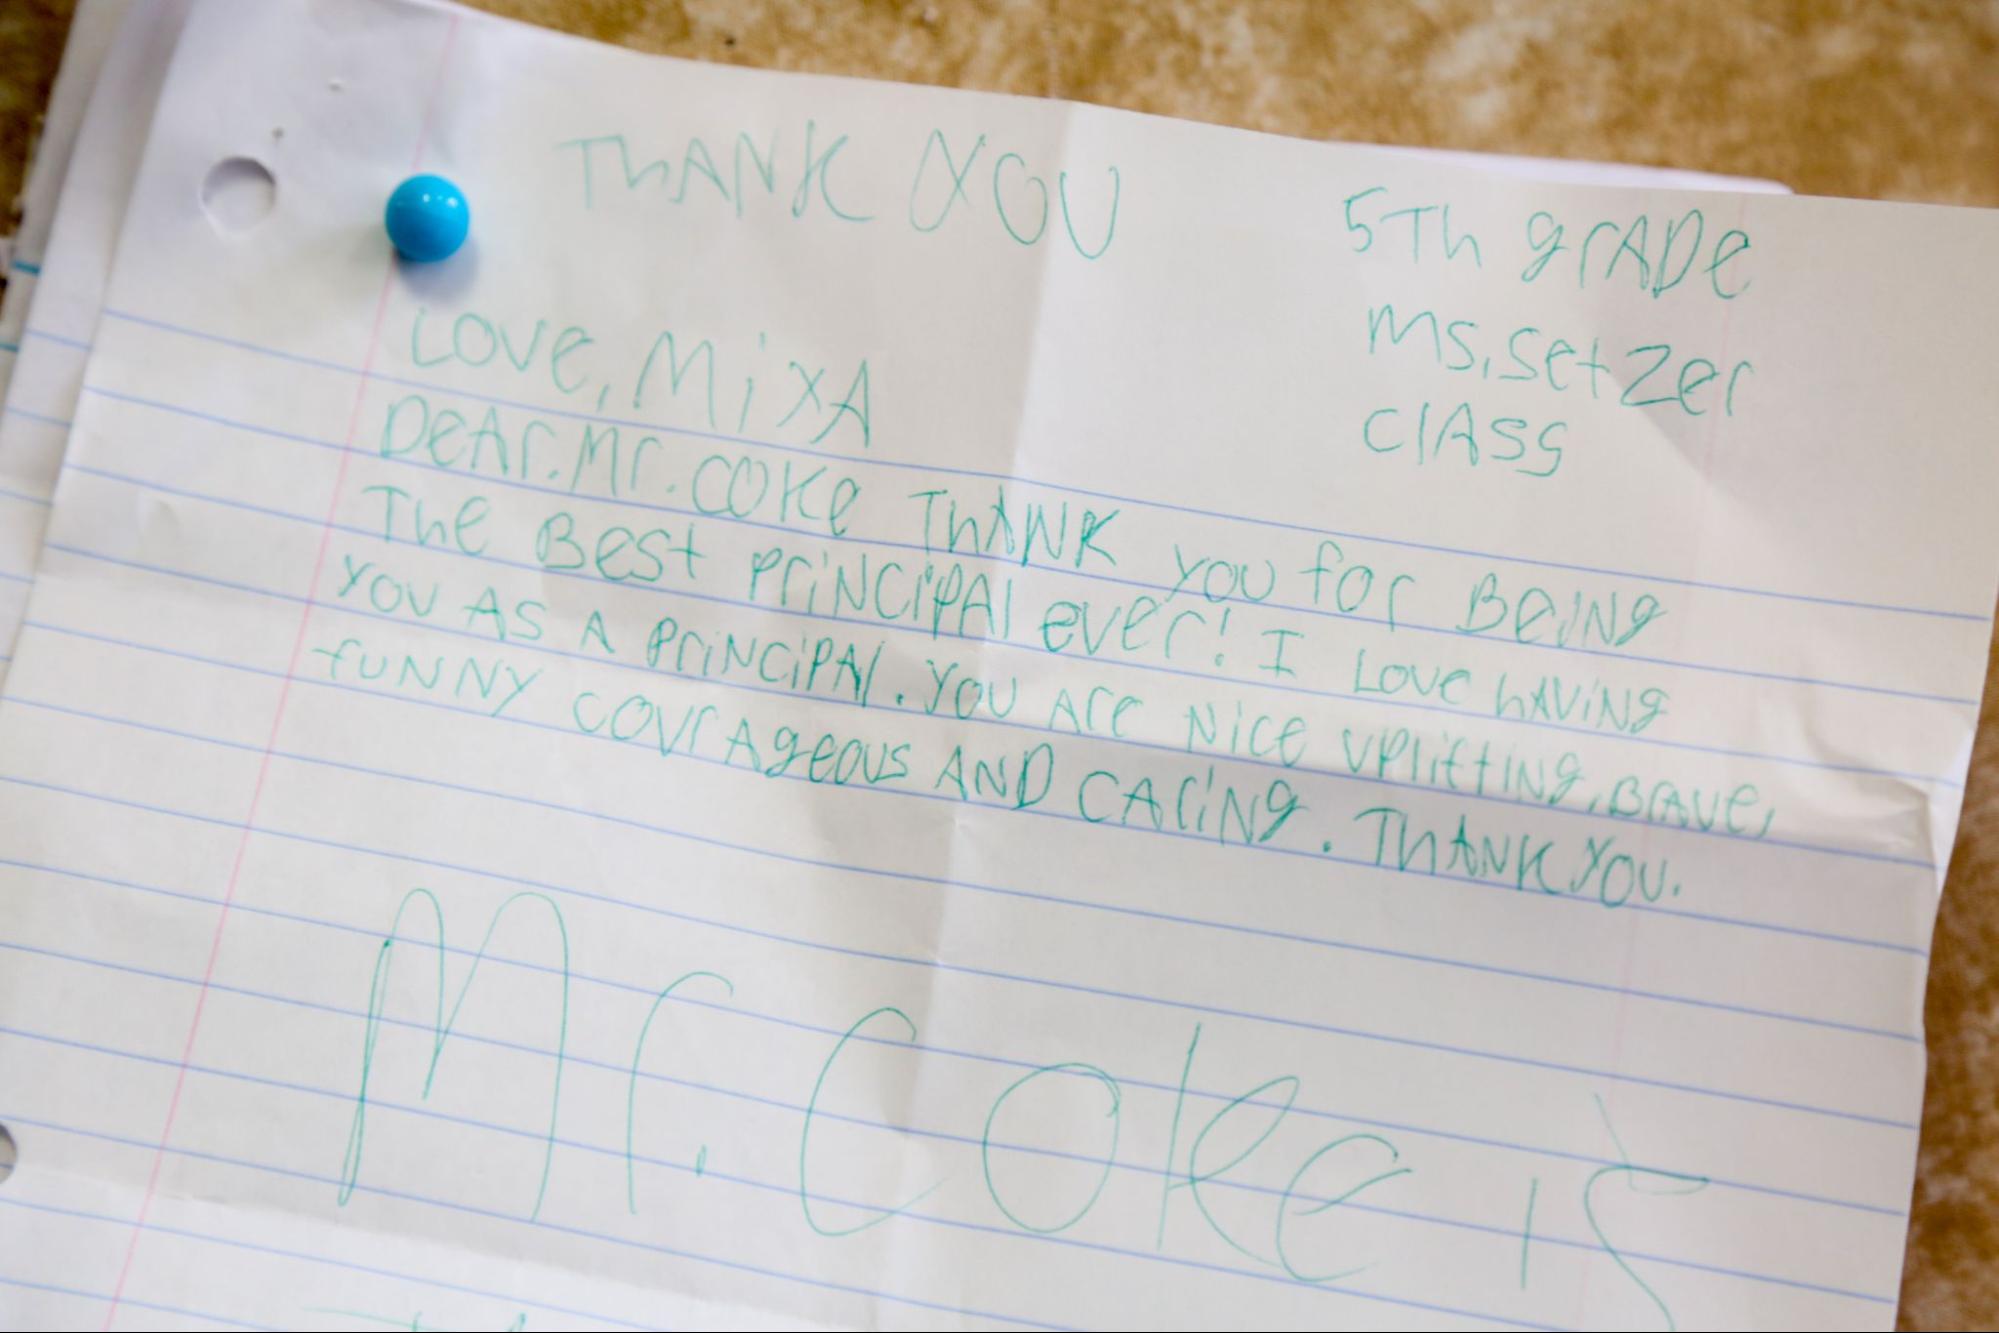 THANK YOU
5Th grADe
Ms. Setzer
clAss
Love, MixA
DeAr. Mr. Coke ThANK you for BeiNg
The Best priNcipAl ever! I Love hAviNg
you As A priNcipAl. You Are Nice upliftiNg, BrAve,
fuNNY courAgeous AND cAriNg. ThANK YOU.
Mr. Coke is